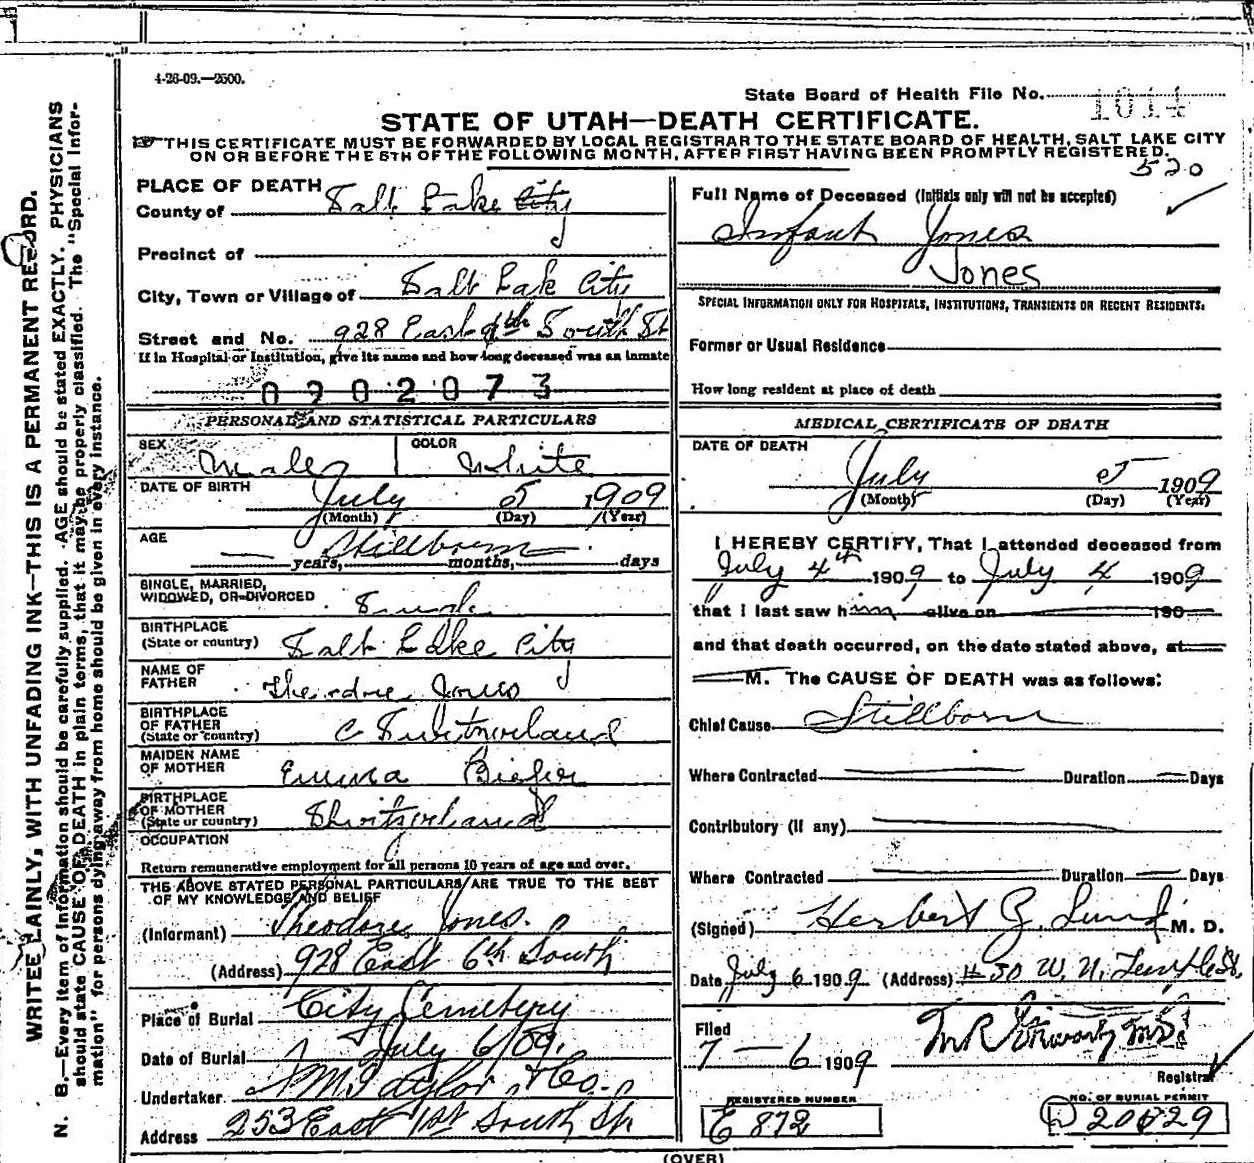 4-26-09.—2500.
State Board of Health File No. 1014
STATE OF UTAH—DEATH CERTIFICATE.
THIS CERTIFICATE MUST BE FORWARDED BY LOCAL REGISTRAR TO THE STATE BOARD OF HEALTH, SALT LAKE CITY
ON OR BEFORE THE 5TH OF THE FOLLOWING MONTH, AFTER FIRST HAVING BEEN PROMPTLY REGISTERED.
520
WRITE PLAINLY, WITH UNFADING INK—THIS IS A PERMANENT RECORD.
N. B.—Every item of information should be carefully supplied. AGE should be stated EXACTLY. PHYSICIANS
should state CAUSE OF DEATH in plain terms, that it may be properly classified. The "Special Infor-
mation" for persons dying away from home should be given in every instance.
PLACE OF DEATH
County of Salt Lake City
Precinct of
City, Town or Village of Salt Lak City
Street and No. 928 East 6th South St
If in Hospital or Institution, give its name and how long deceased was an inmate
0902073
PERSONAL AND STATISTICAL PARTICULARS
SEX Male COLOR White
DATE OF BIRTH July 5 1909
(Month) (Day) (Year)
AGE Stillborn
years, months, days
SINGLE, MARRIED,
WIDOWED, OR DIVORCED Single
BIRTHPLACE
(State or country) Salt Lake City
NAME OF
FATHER Theodore Jones
BIRTHPLACE
OF FATHER
(State or country) Switzerland
MAIDEN NAME
OF MOTHER Emma Biefer
BIRTHPLACE
OF MOTHER
(State or country) Switzerland
OCCUPATION
Return remunerative employment for all persons 10 years of age and over.
THE ABOVE STATED PERSONAL PARTICULARS ARE TRUE TO THE BEST
OF MY KNOWLEDGE AND BELIEF
(Informant) Theodore Jones.
(Address) 928 East 6th South
Place of Burial City Cemetery
Date of Burial July 6/09.
Undertaker S M Taylor & Co.
Address 253 East 1st South St
Full Name of Deceased (Initials only will not be accepted)
Infant Jones
Jones
SPECIAL INFORMATION ONLY FOR HOSPITALS, INSTITUTIONS, TRANSIENTS OR RECENT RESIDENTS:
Former or Usual Residence
How long resident at place of death
MEDICAL CERTIFICATE OF DEATH
DATE OF DEATH
July 5 1909
(Month) (Day) (Year)
I HEREBY CERTIFY, That I attended deceased from
July 4th 1909 to July 4 1909
that I last saw him alive on 190
and that death occurred, on the date stated above, at
M. The CAUSE OF DEATH was as follows:
Chief Cause Stillborn
Where Contracted Duration Days
Contributory (if any)
Where Contracted Duration Days
(Signed) Herbert Z. Lund M. D.
Date July 6 1909 (Address) # 50 W. N. Temple St.
Filed
7 — 6 1909
Registrar
REGISTERED NUMBER
E 872
NO. OF BURIAL PERMIT
D 20629
(OVER)